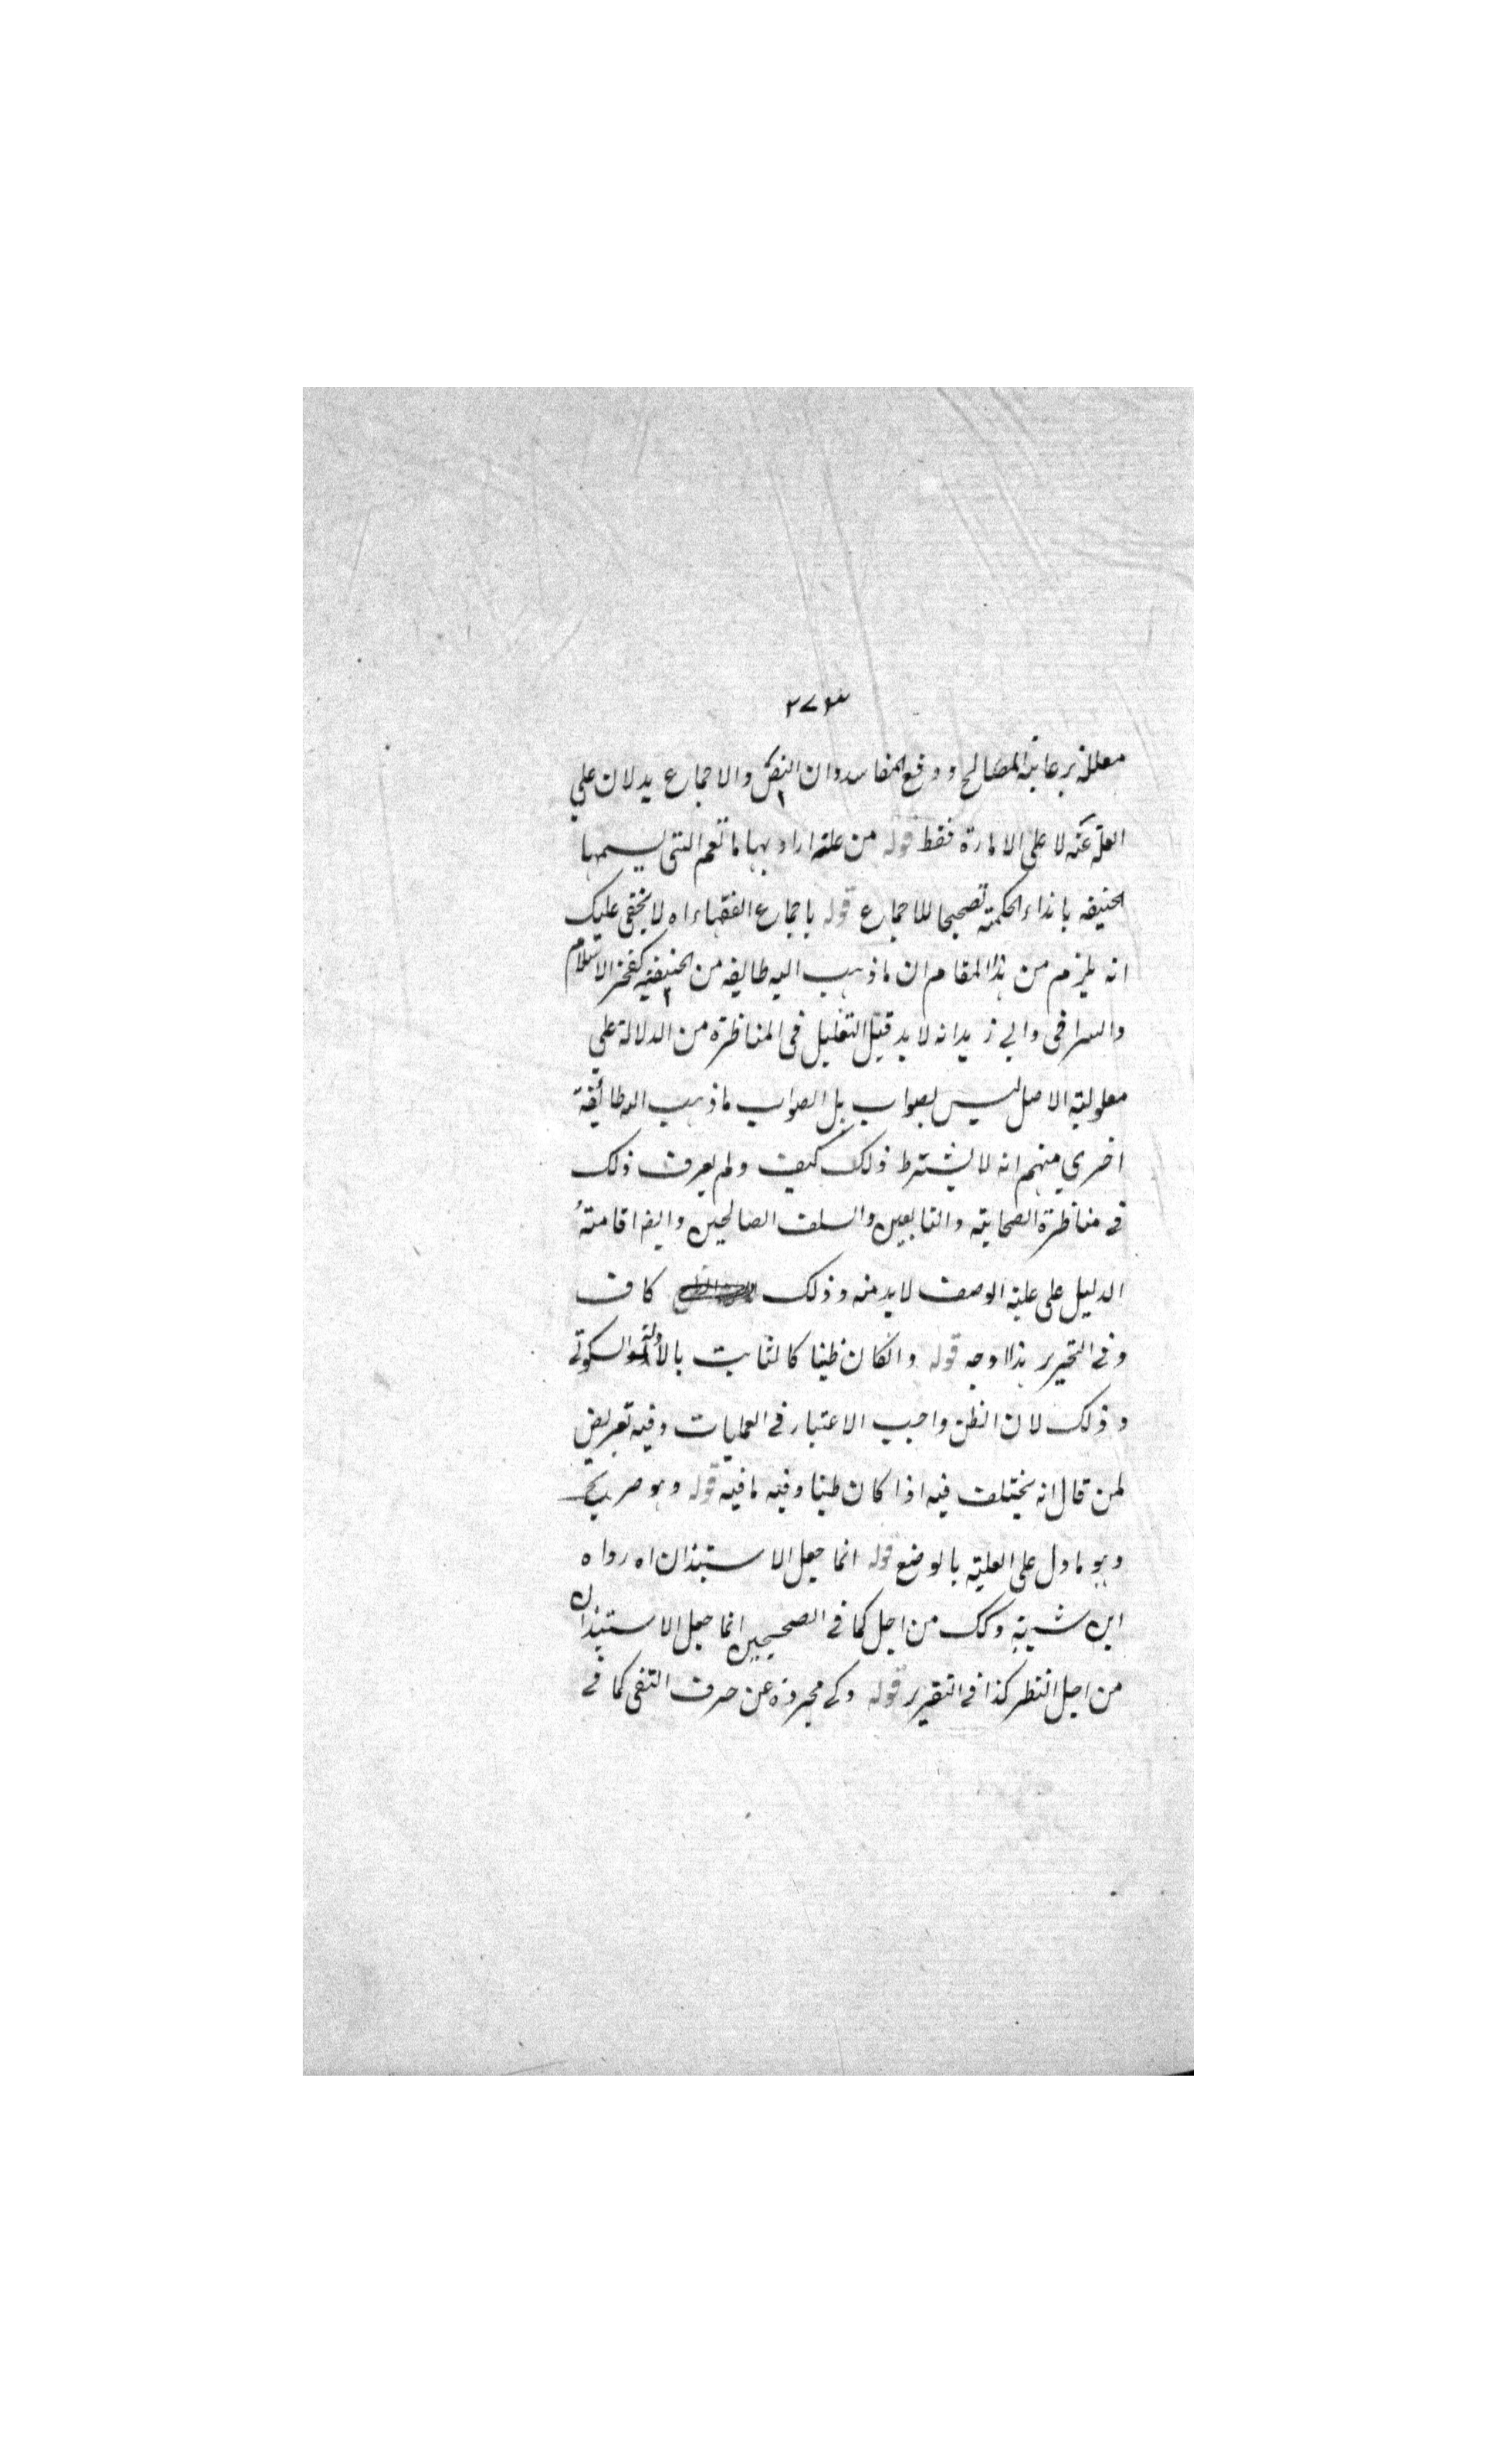 ٢٧٣
معللة برعاية المصالح و دفع المفاسد وان النص والاجماع يدلان علي
العلة عنه لا على الامارة فقط قوله من علة اراد بها ما تعم التي يسميها
الحنيفه بانداء الحكمة تصحيحا للاجماع قوله باجماع الفقهاء اه لا يخفى عليك
انه يلزم من هذا المقام ان ما ذهب اليه طايفه من الحنيفيه كفخر الاسلام
والسرخى وابي زيد انه لا بد قبل التعليل في المناظرة من الدلالة علي
معلولية الاصل ليس بصواب بل الصواب ما ذهب اليه طائفة
اخري منهم انه لا يشترط ذلك كيف ولم يعرف ذلك
في مناظرة الصحابة والتابعين والسلف الصالحين وايضا اقامة
الدليل على علية الوصف لا بد منه وذلك كاف
وفي التحرير هذا اوجه قوله وان كان ظنيا كالثابت بالآ والسكوتي
وذلك لان الظن واجب الاعتبار في العمليات وفيه تعريض
لمن قال انه يختلف فيه اذا كان ظنيا وفيه ما فيه قوله وهو صريح
وهو ما دل على العلية بالوضع قوله انما جعل الاستيذان اه رواه
ابن شيبة وكك من اجل كما في الصحيحين انما جعل الاستيذان
من اجل النظر كذا في التقرير قوله وكي مجردة عن حرف النفى كما في